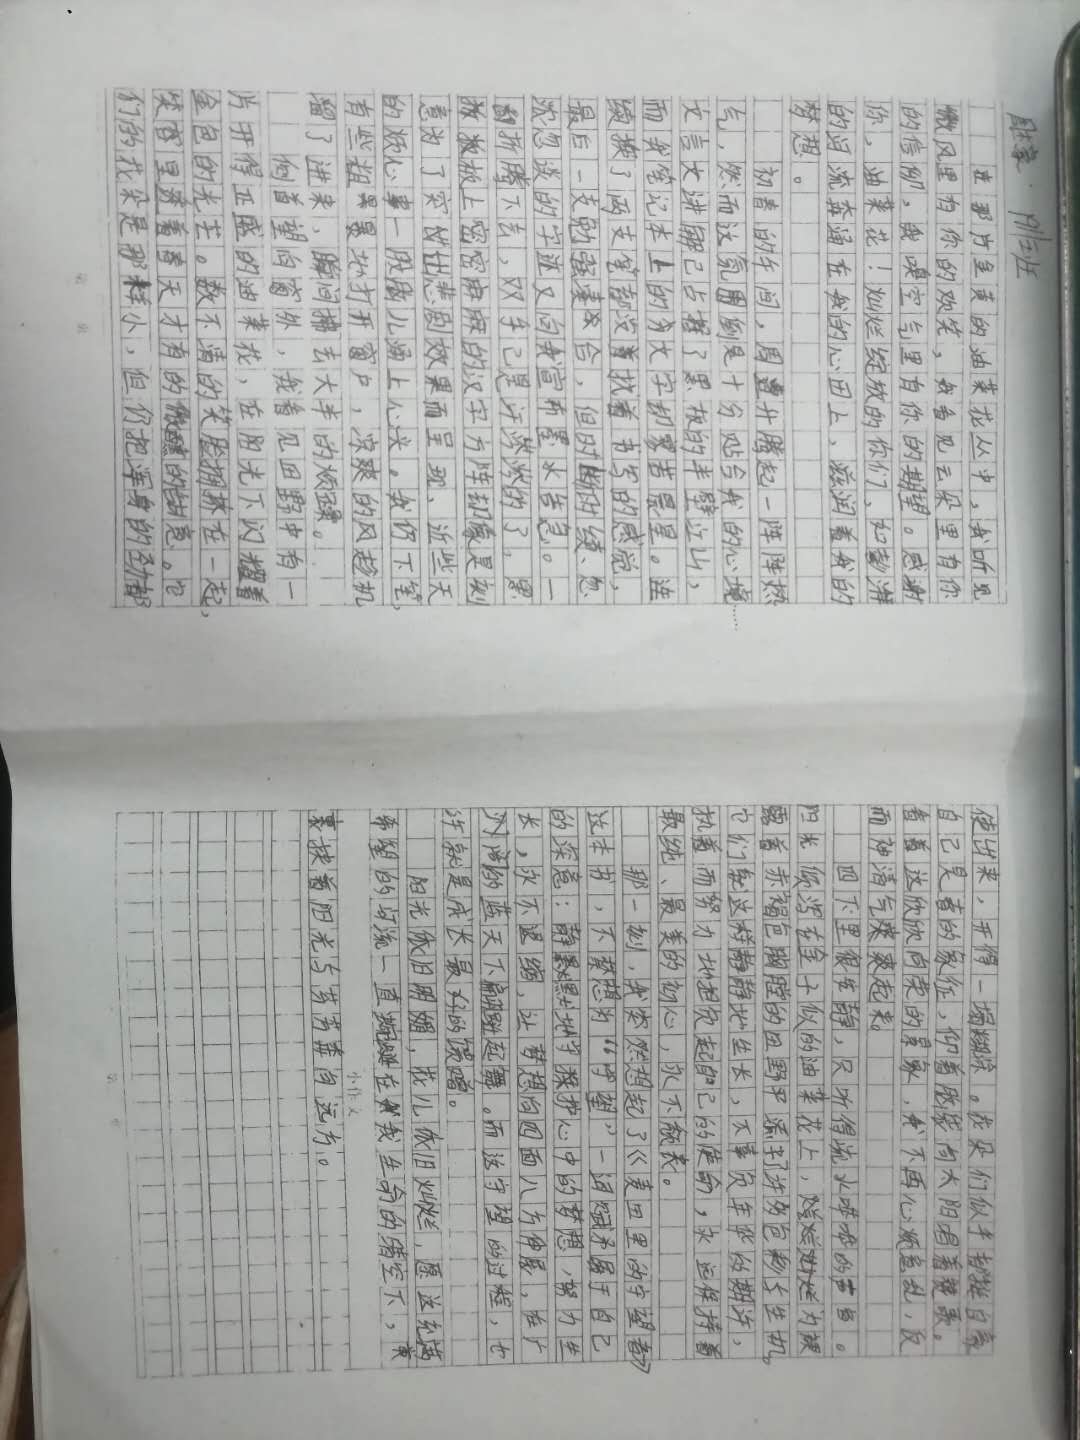 9/2班
在那片金黄的油菜花丛中，我听见
微风里有你的欢笑，我看见云朵里有你
的信仰，我嗅空气里有你的期望。感谢
你，油菜花！灿烂绽放的你们，如
的河流奔通在我的心田上，滋润着我的
梦想。
初春的午间，周遭升腾起一阵阵燥
气，然而这氛围倒是十分贴合我的心境……
文言文讲解已占据了黑板的半壁江山，
而我笔记本上的字却寥若晨星。连
续换了两支笔都没找着书写的感觉，
最后一支勉强凑合，但时断时续、忽
浓忽淡的字迹又向我宣布墨水告急。一
翻折腾下去，双手已是汗涔涔的了，黑
板上密密麻麻的汉字方阵却像是刻
意为了突出悲剧效果而呈现，近些天
的烦心事一股脑儿涌上心头。我仍下笔，
有些粗暴地打开窗户，凉爽的风趁机
溜了进来，瞬间拂去大半的烦躁。
侧首望向窗外，我看见田野中有一
片开得正盛的油菜花，在阳光下闪耀着
金色的光芒。数不清的笑脸拥挤在一起，
笑容里绣着春天才有的的。它
们的花朵是那样小，但仍把浑身的劲都
使出来，开得一塌糊涂。花朵们似乎都
自己是春的象征，仰着脸庞向太阳唱着赞歌。
看着这欣欣向荣的景象，我不再心烦意乱，反
而神清气爽起来。
四下里很安静，只听得流水哗哗的声音。
阳光倾泻在金子似的油菜花上，为裸
露着赤褐色胸膛的田野平添了许多色彩与生机。
它们就这样静静地生长，不辜负年华的期许，
执着而努力地担负起自己的使命，永远保持着
最纯、最美的初心，永不衰。
那一刻，我突然想起了《麦田里的守望者》
这本书，不禁想为“守望”一词赋予属于自己
的深意：静默地守护心中的梦想，努力生
长，永不退缩，让梦想向四面八方伸展，在广
阔的蓝天下翩翩起舞。而这守望的过程，也
许就是成长最好的馈赠。
阳光依旧明媚，花儿依旧灿烂，愿这充满
希望的河流一直蜿蜒在我生命的晴空下，
裹挟着阳光与芳菲奔向远方。
小作文